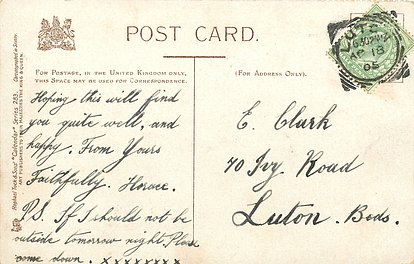 POST CARD.
FOR POSTAGE, IN THE UNITED KINGDOM ONLY,
THIS SPACE MAY BE USED FOR CORRESPONDENCE.
(FOR ADDRESS ONLY.)
Hoping this will find
you quite well, and
happy. From Yours
Faithfully. Horace.
P.S. If I should not be
outside tomorrow night Please
come down. xxxxxxxx
E. Clark
70 Ivy Road
Luton. Beds.
LUTON
18
05
Raphael Tuck & Sons' "Calendar" Series 253.
ART PUBLISHERS TO THEIR MAJESTIES THE KING & QUEEN.